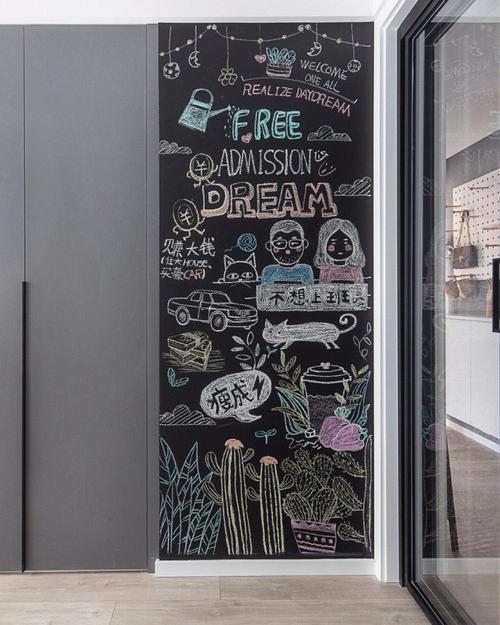 WELCOME
ONE ALL
REALIZE DAYDREAM
FREE
ADMISSION
DREAM
赚大钱
(住大HOUSE,
买豪CAR)
不想上班
瘦成